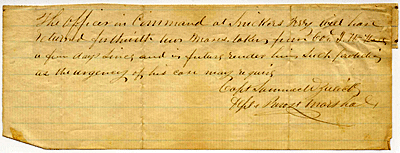 The Officer in Command at Snickers Ferry will have
returned forthwith two Mares taken from
a few days since, and in future render him such facilities
as the urgency of his case may require
Capt Samuel
Dept Provost Marshal